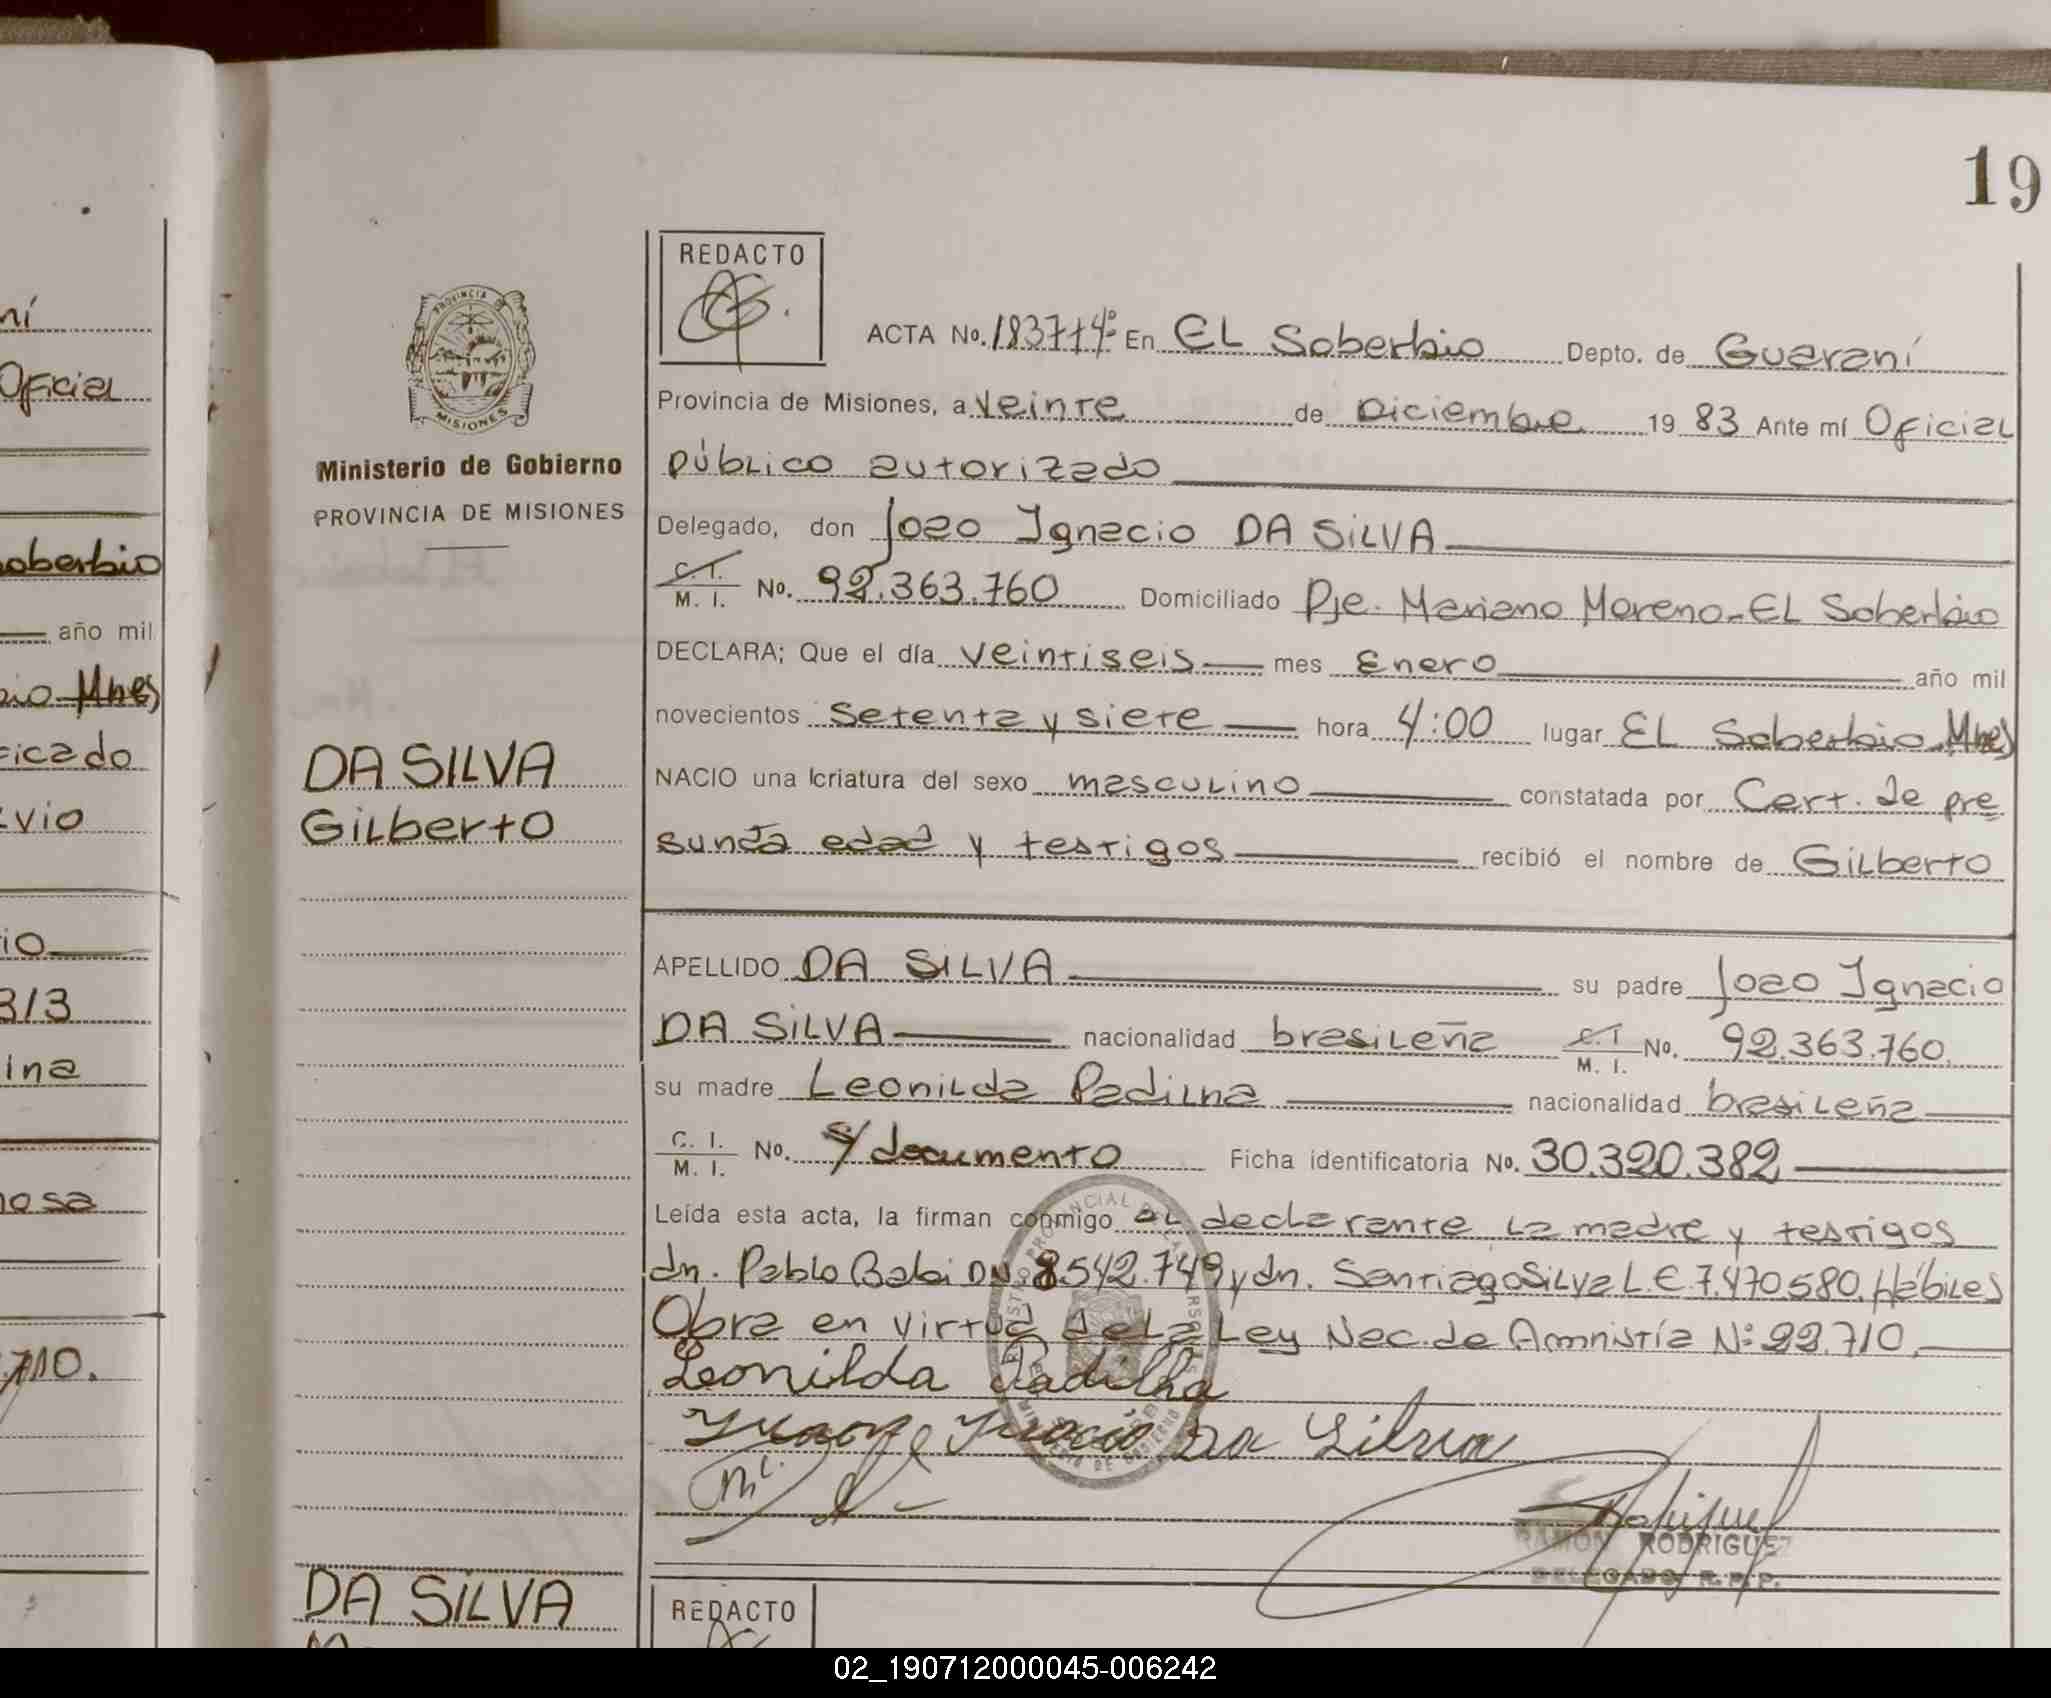 19
ní
Oficial
Soberbio
año mil
bio Mnes
ficado
lvio
io
313
ina
osa
.710.
PROVINCIA DE
MISIONES
Ministerio de Gobierno
PROVINCIA DE MISIONES
DA SILVA
Gilberto
REDACTO
ACTA No. 183 T 4º En EL Soberbio Depto. de Guaraní
Provincia de Misiones, a Veinte de Diciembre 19 83 Ante mí Oficial
Público autorizado
Delegado, don Joao Ignacio DA SILVA
C. I. / M. I. No. 92.363.760 Domiciliado Pje. Mariano Moreno-EL Soberbio
DECLARA; Que el día veintiseis mes Enero año mil
novecientos setenta y siete hora 4:00 lugar EL Soberbio Mnes
NACIO una criatura del sexo masculino constatada por Cert. de pre
sunta edad y testigos recibió el nombre de Gilberto
APELLIDO DA SILVA su padre Joao Ignacio
DA SILVA nacionalidad brasileña C. I. / M. I. No. 92.363.760
su madre Leonilda Padilha nacionalidad brasileña
C. I. / M. I. No. s/ documento Ficha identificatoria No. 30.320.382
Leída esta acta, la firman conmigo el declarante, la madre y testigos
dn. Pablo Babi DN. 8542.749 y dn. Santiago Silva L.E 7.470.580. Hábiles
Obra en virtud de la Ley Nac. de Amnistía Nº 22.710.
Leonilda Padilha
Da Silva
RAMON RODRIGUEZ
DELEGADO R.P.P.
DA SILVA
REDACTO
02_190712000045-006242